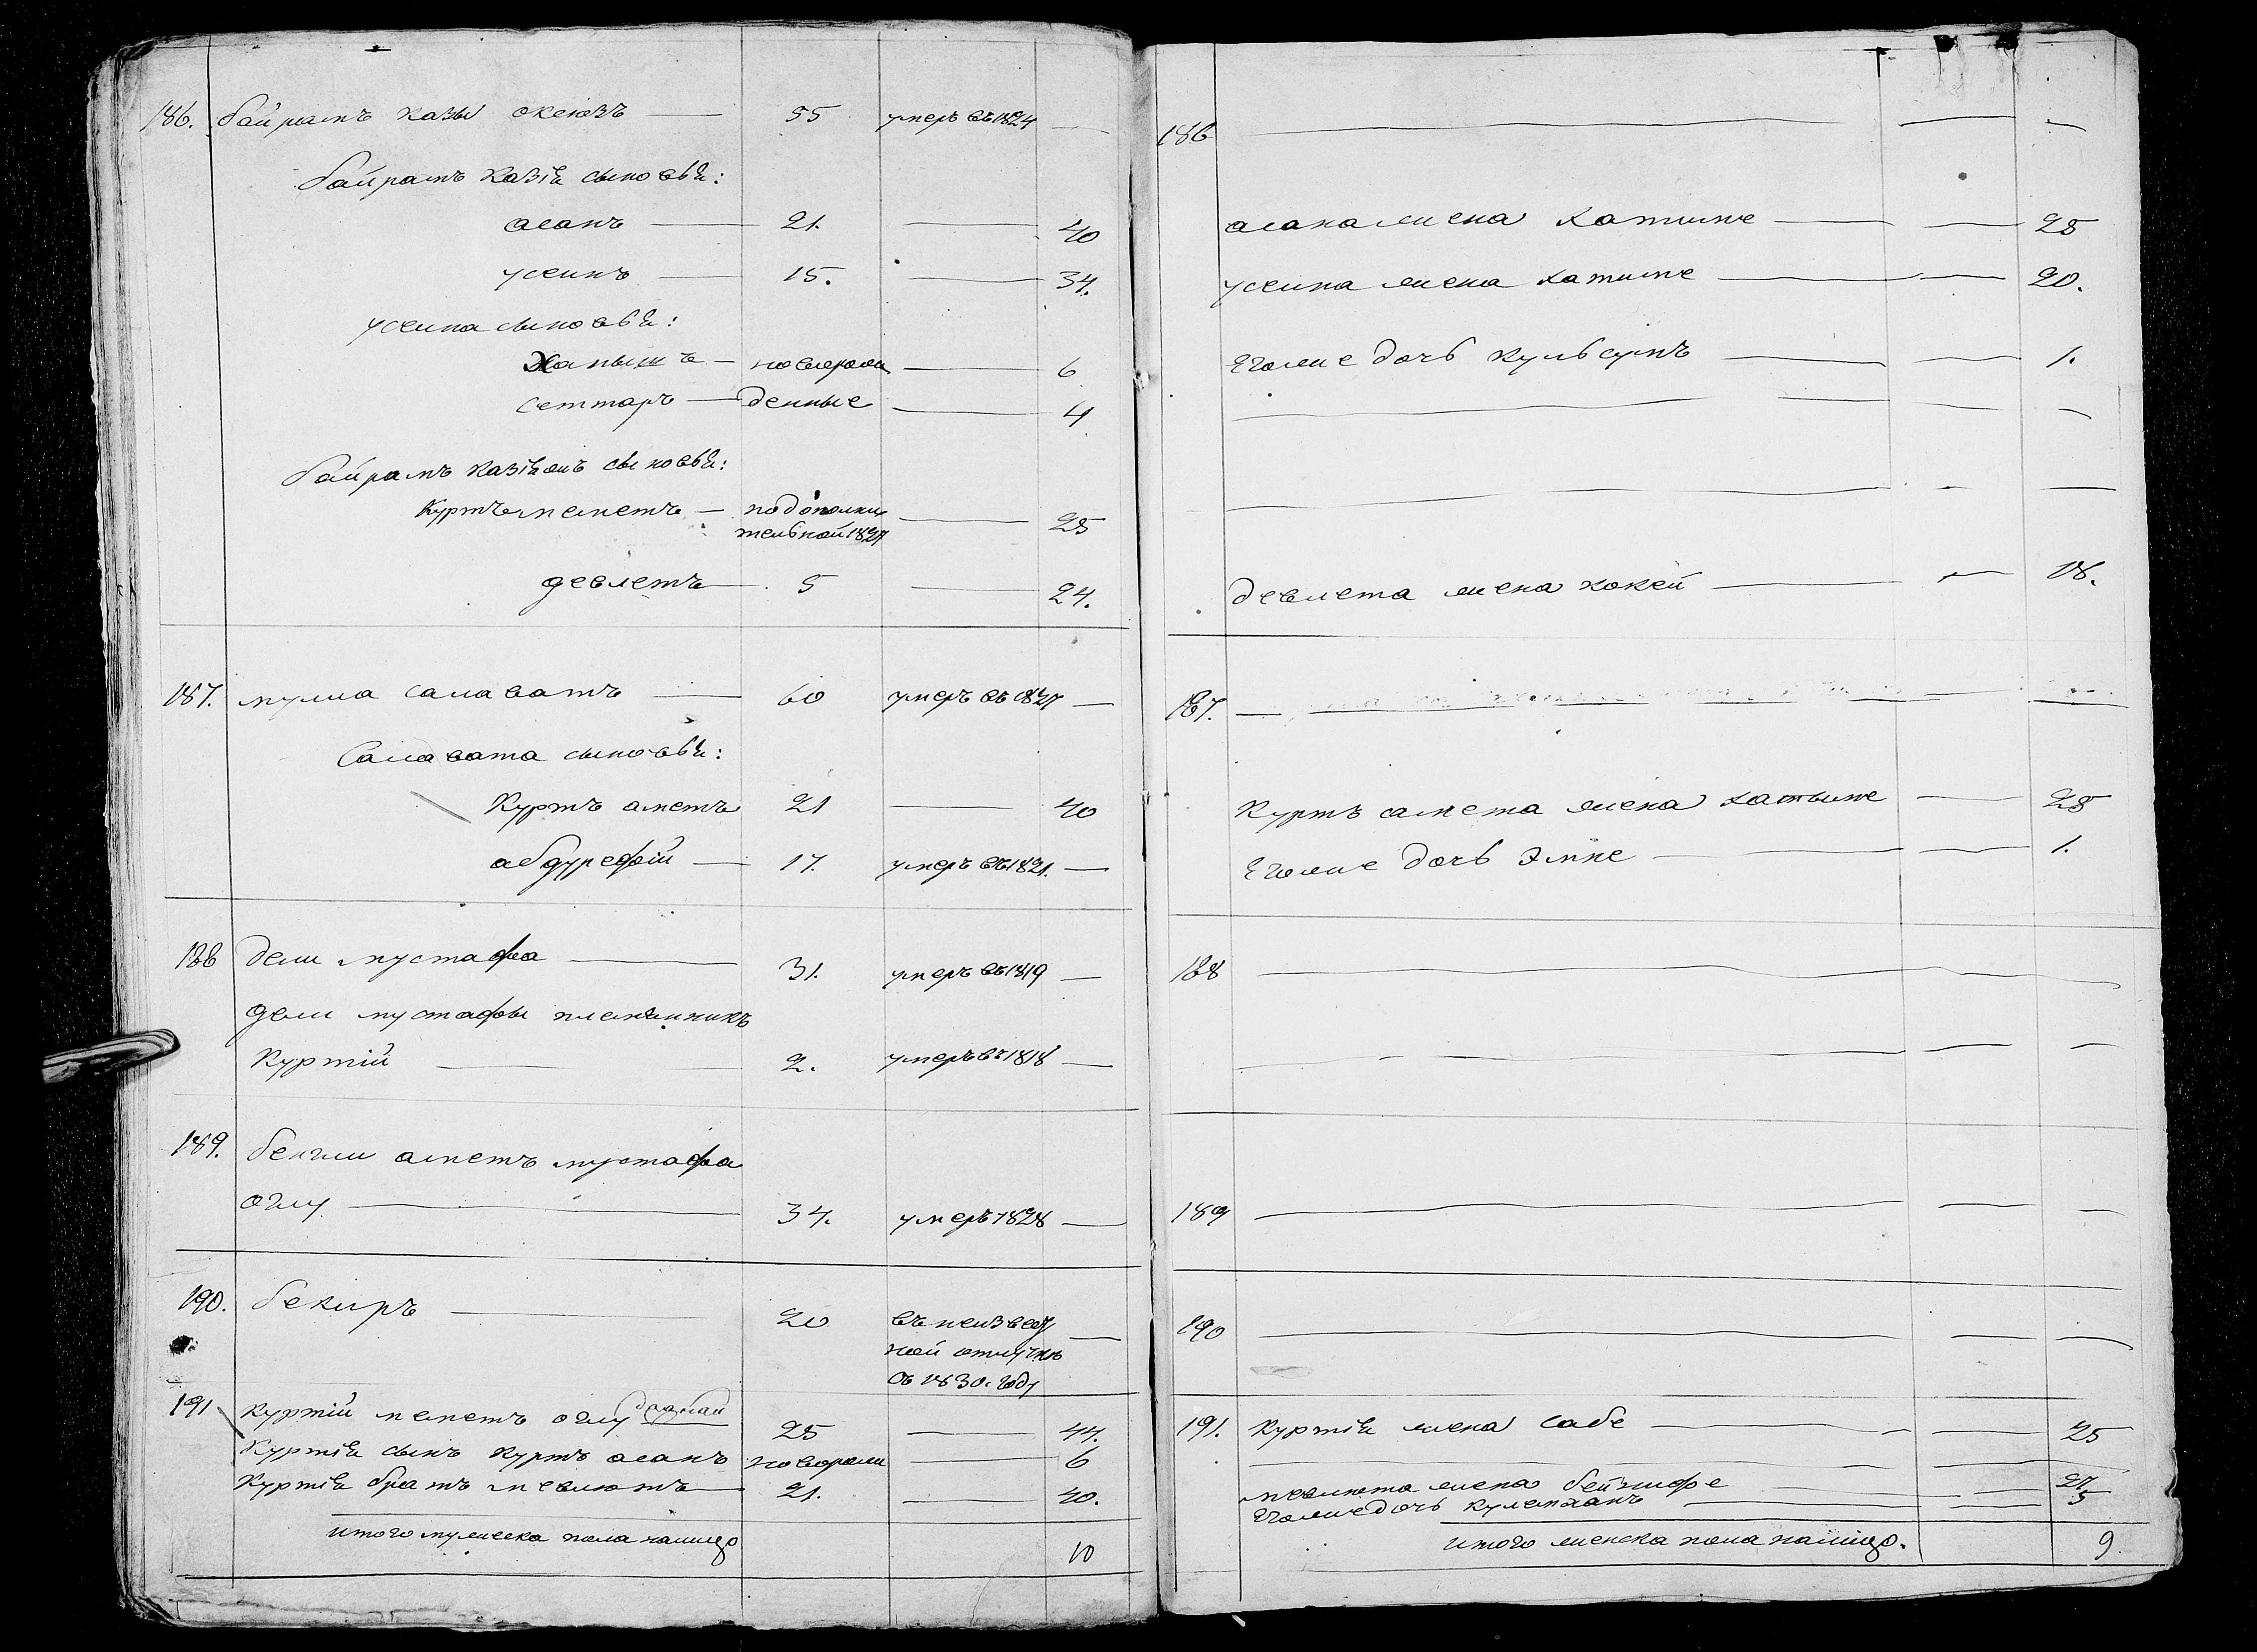 186. байрамъ казы океюзъ — 55 умеръ въ 1824 —
байрамъ казія сыновья:
асанъ — 21. — 40
усеинъ — 15. — 34.
усеина сыновья:
— новорож — 6
сеттаръ — денные — 4
байрамъ сыновья:
Куртъ меметъ — по дополни — 25
тельной 1827
девлетъ — 5 — 24.
187. мулла салаватъ — 60 умеръ въ 1827 —
Салавата сыновья:
Куртъ аметъ 21 — 40
абдурефій — 17. умеръ въ 1821. —
188 дели мустафа — 31. умеръ въ 1819 —
дели мустафы племянникъ
Куртій — 2. умеръ въ 1818 —
189. бенгли аметъ мустафа
оглу — 34. умеръ 1828 —
190. бекиръ — 20 въ неизвест —
ной отлучке
съ 1830. году
191 куртій меметъ оглу 25 — 44.
Куртія сынъ куртъ асанъ новорож — 6
Куртія братъ мевлютъ 21. — 40.
итого мужеска пола налицо 10
186 — — —
асана жена хатиже — — 28
усеина жена хатиже — — 20.
его же дочь кульсумъ — — 1.
— — —
— — —
девлета жена — — 18.
187. — — —
Куртъ амета жена хатиже — 28
его же дочь Эмине — — 1.
188 — — —
— — —
189 — — —
190 — — —
191. куртія жена сабе — — 25
— —
мевлюта жена — — 27
его же дочь — — 3
итого женска пола налицо. 9